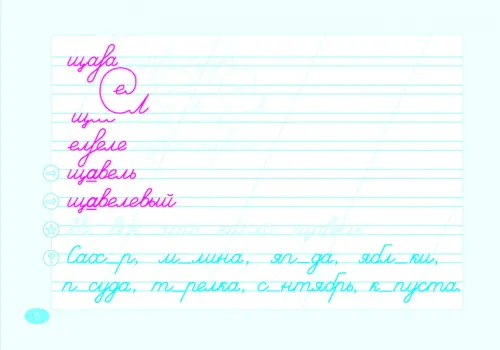 щава
е
л
щ
елвеле
щавель
щавелевый
Сах_р, м_лина, яг_да, ябл_ки,
п_суда, т_релка, с_нтябрь, к_пуста.